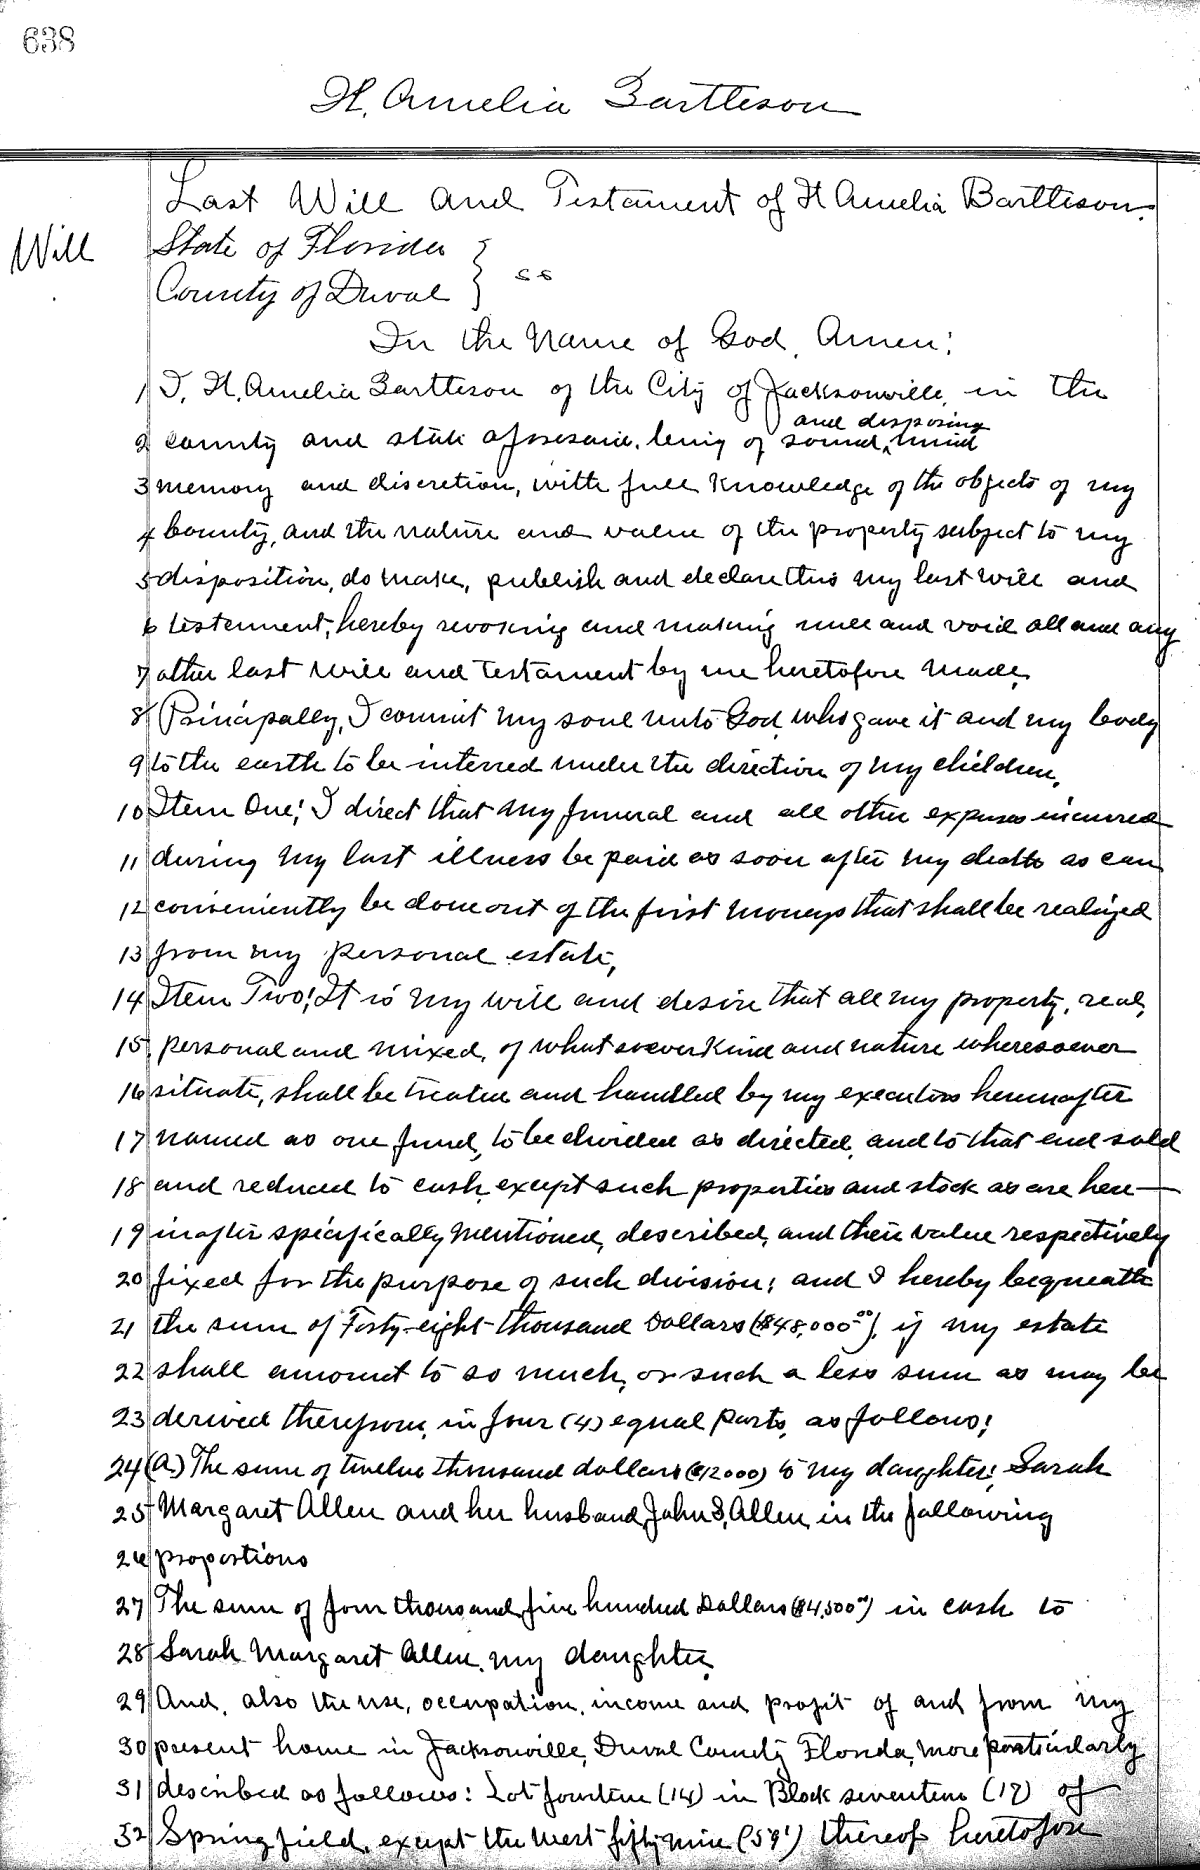 638
H. Amelia Bartleson
Last Will and Testament of H Amelia Bartleson.
Will
State of Florida
County of Duval } ss
In the Name of God, Amen:
1 I, H. Amelia Bartleson of the City of Jacksonville, in the
and disposing
2 county and state aforesaid, being of sound, mind
3 memory and discretion, with full knowledge of the objects of my
4 bounty, and the nature and value of the property subject to my
5 disposition, do make, publish and declare this my last will and
6 testament, hereby revoking and making null and void all and any
7 other last will and testament by me heretofore made.
8 Principally, I commit my soul unto God, who gave it and my body
9 to the earth to be interred under the direction of my children.
10 Item One: I direct that my funeral and all other expenses incurred
11 during my last illness be paid as soon after my death as can
12 conveniently be done out of the first moneys that shall be realized
13 from my personal estate,
14 Item Two: It is my will and desire that all my property, real,
15 personal and mixed, of whatsoever kind and nature wheresoever
16 situate, shall be treated and handled by my executors hereinafter
17 named as one fund, to be divided as directed, and to that end sold
18 and reduced to cash, except such properties and stock as are here-
19 inafter specifically mentioned, described, and their value respectively
20 fixed for the purpose of such division; and I hereby bequeath
21 the sum of Forty-eight thousand Dollars ($48,000.00), if my estate
22 shall amount to so much, or such a less sum as may be
23 derived therefrom, in four (4) equal parts, as follows:
24 (A.) The sum of twelve thousand dollars ($12000) to my daughter, Sarah
25 Margaret Allen and her husband, John S. Allen, in the following
26 proportions
27 The sum of four thousand, five hundred Dollars ($4,500.00) in cash to
28 Sarah Margaret Allen, my daughter,
29 And, also the use, occupation, income and profit of and from my
30 present home in Jacksonville, Duval County, Florida, more particularly
31 described as follows: Lot fourteen (14) in Block seventeen (17) of
32 Springfield, except the West fifty-nine (59') thereof heretofore